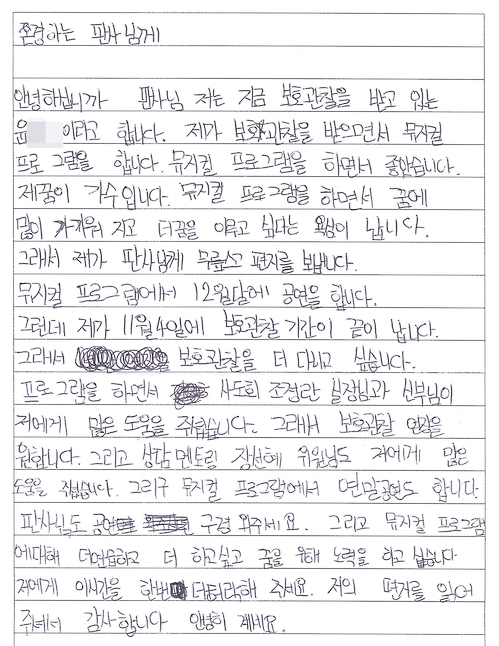 존경하는 판사님께
안녕하십니까 판사님 저는 지금 보호관찰을 받고 있는
윤 이라고 합니다. 제가 보호관찰을 받으면서 뮤지컬
프로그램을 합니다. 뮤지컬 프로그램을 하면서 좋았습니다.
제꿈이 가수입니다. 뮤지컬 프로그램을 하면서 꿈에
많이 가까워 지고 더꿈을 이루고 싶다는 욕심이 납니다.
그래서 제가 판사님께 무릎쓰고 편지를 보냅니다.
뮤지컬 프로그램에서 12월달에 공연을 합니다.
그런데 제가 11월4일에 보호관찰 기간이 끝이 납니다.
그래서 보호관찰을 더 다니고 싶습니다.
프로그램을 하면서 사도회 조경란 실장님과 신부님이
저에게 많은 도움을 줘습니다. 그래서 보호관찰 연장을
원합니다. 그리고 상담멘토링 장선혜 위원님도 저에게 많은
도움을 줘습니다. 그리구 뮤지컬 프로그램에서 연말공연도 합니다
판사님도 공연 구경 와주세요. 그리고 뮤지컬 프로그램
에대해 더연습하고 더 하고싶고 꿈을 위해 노력을 하고 싶습니다
저에게 이시간을 한번 더허락해 주세요. 저의 편지를 읽어
주셔서 감사합니다 안녕히 계세요.